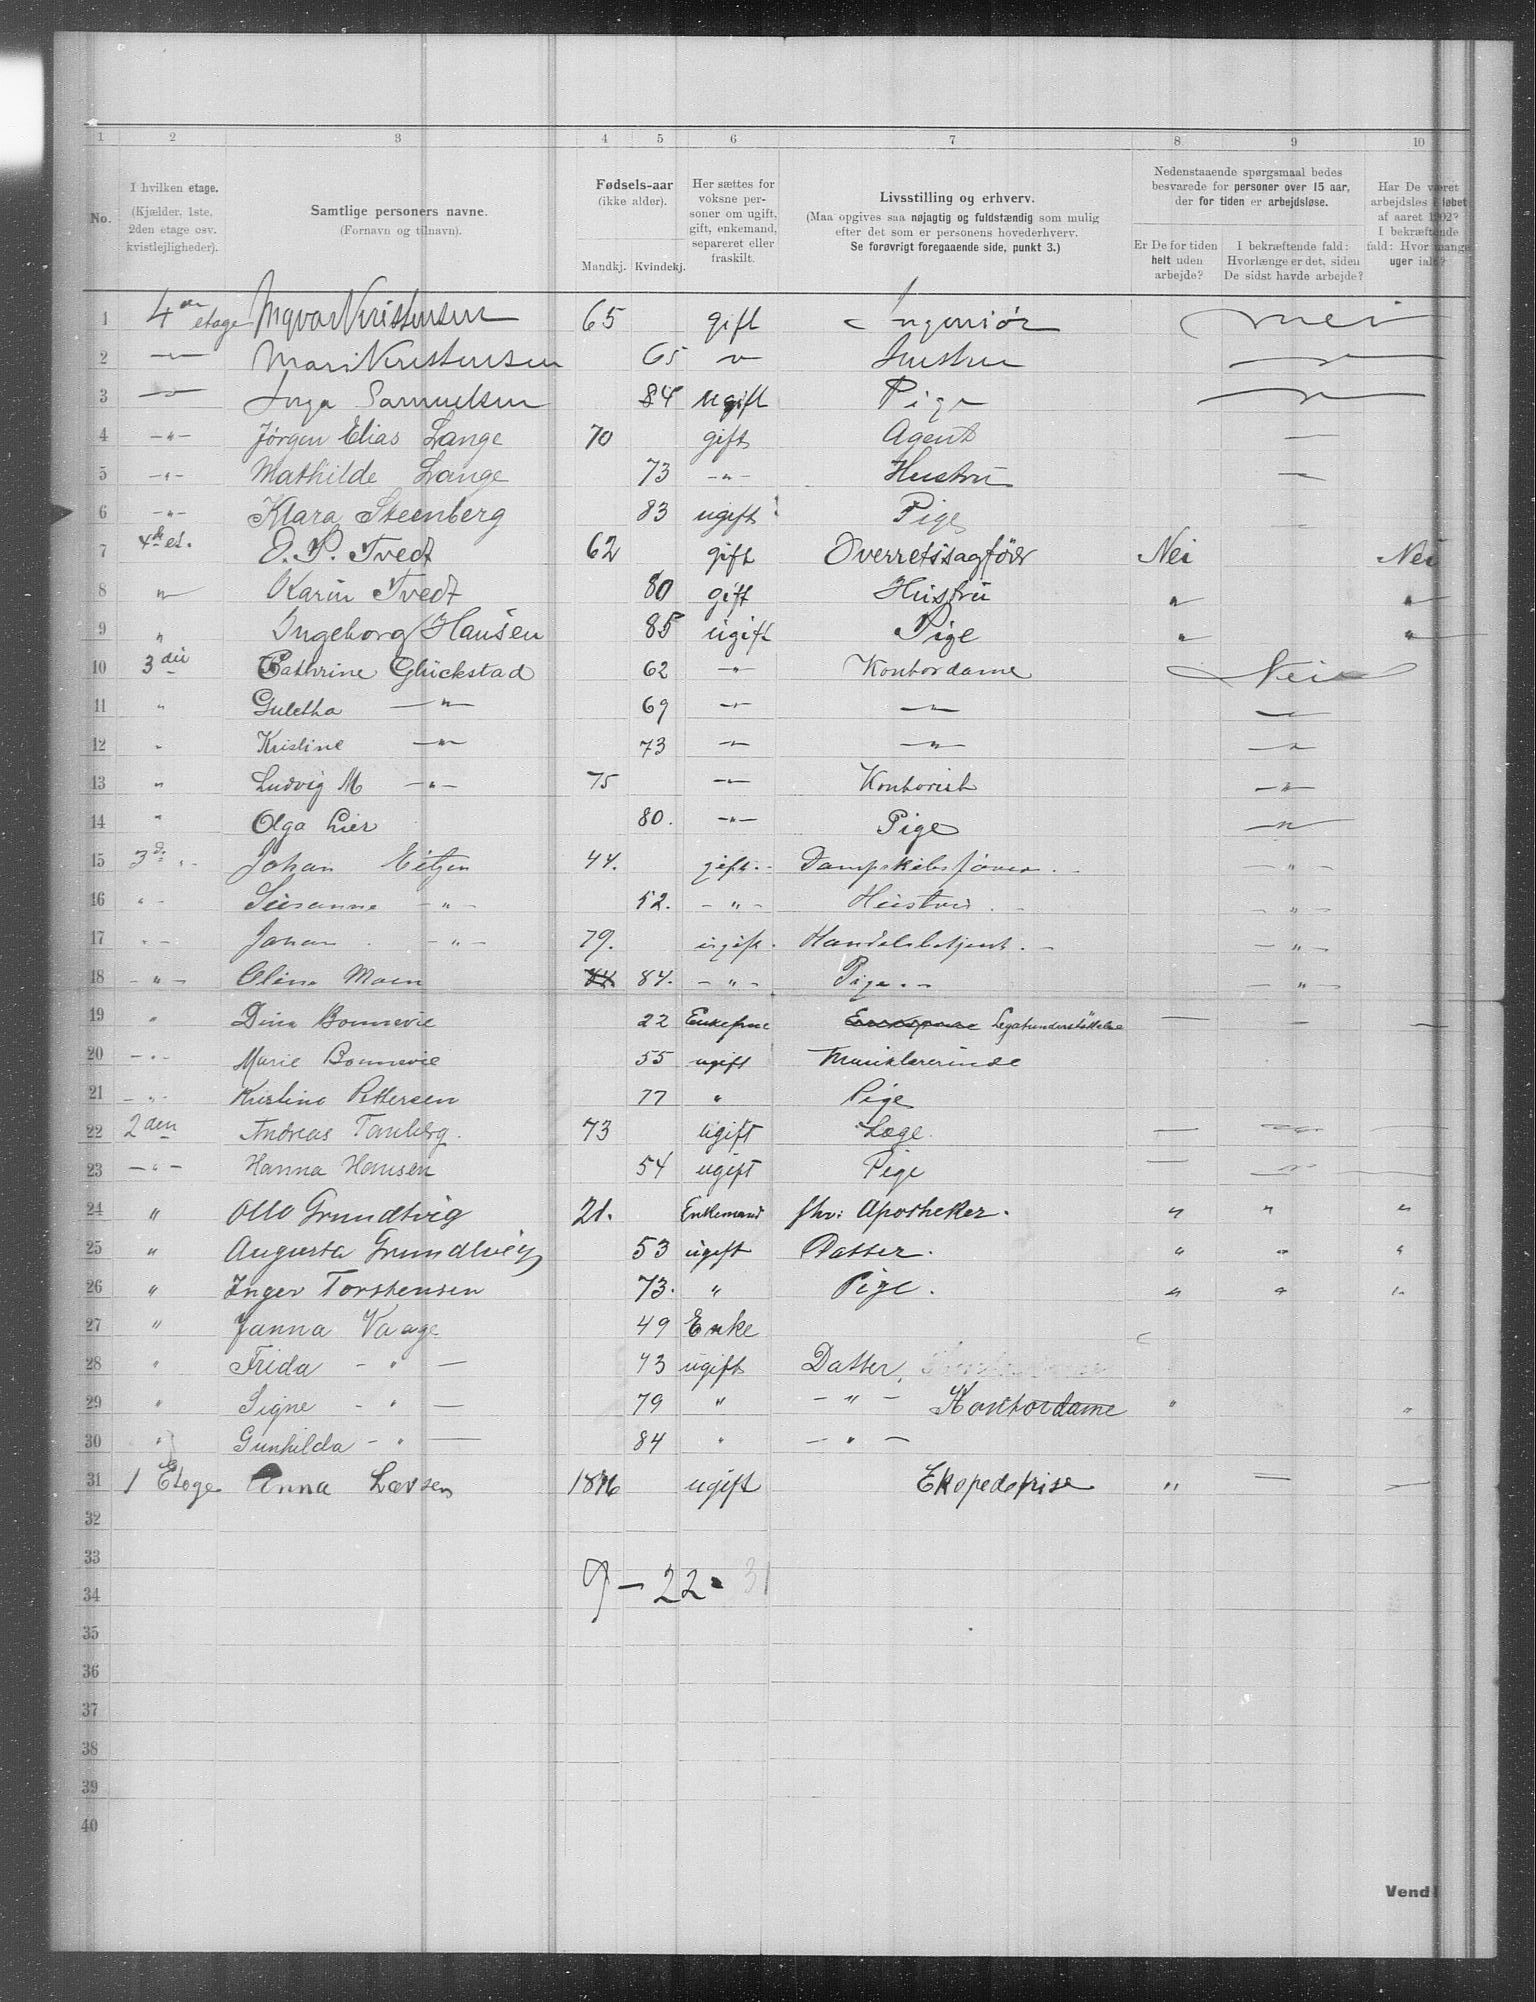 1 2 3 4 5 6 7 8 9 10
No.
I hvilken etage.
(Kjælder, 1ste, 2den etage osv. kvistlejligheder).
Samtlige personers navne.
(Fornavn og tilnavn).
Fødsels-aar
(ikke alder).
Mandkj. Kvindekj.
Her sættes for voksne personer om ugift, gift, enkemand, separeret eller fraskilt.
Livsstilling og erhverv.
(Maa opgives saa nøjagtig og fuldstændig som mulig efter det som er personens hovederhverv.
Se forøvrigt foregaaende side, punkt 3.)
Nedenstaaende spørgsmaal bedes besvarede for personer over 15 aar, der for tiden er arbejdsløse.
Er De for tiden helt uden arbejde?
I bekræftende fald: Hvorlænge er det, siden De sidst havde arbejde?
Har De været arbejdsløs i løbet af aaret 1902? I bekræftende fald: Hvor mange uger ialt?
1 4 etage Ingvar Kristensen 65 gift Ingeniør nei
2 — Mari Kristensen 65 " Hustru "
3 — Inga Samuelsen 84 ugift Pige "
4 —"— Jørgen Elias Lange 70 gift Agent —
5 —"— Mathilde Lange 73 —"— Hustru —
6 —"— Klara Steenberg 83 ugift Pige —
7 4de et. O. P. Tvedt 62 gift Overretssagfører Nei Nei
8 " Karin Tvedt 80 gift Hustru " "
9 " Ingeborg Hansen 85 ugift Pige " "
10 3die Cathrine Glückstad 62 —"— Kontordame Nei
11 " Guletha —"— 69 —"— —"— —"—
12 " Kristine —"— 73 —"— —"— —"—
13 " Ludvig M —"— 75 —"— Kontorist —"—
14 " Olga Lier 80. —"— Pige —"—
15 3d " Johan Eitzen 44. gift. Dampskibsfører. —"—
16 " Susanne —"— 52. —"— Hustru. —"—
17 " Johan —"— 79. ugift. Handelsbetjent. —"—
18 —"— Oline Moen 84. —"— Pige. —"—
19 " Dina Bonnevie 22 Enkefrue Legatunderstøttelse — — —
20 —"— Marie Bonnevie 55 ugift Musiklærerinde
21 —"— Kristine Pettersen 77 " Pige
22 2den Andreas Tanberg. 73 ugift Læge. — — —
23 —"— Hanna Hansen 54 ugift Pige — —"—
24 " Otto Grundtvig 21. Enkemand fhv: Apotheker. " " "
25 " Augusta Grundtvig 53 ugift Datter. " " "
26 " Inger Torstensen 73. " Pige. " " "
27 " Janna Vaage 49 Enke
28 " Frida —"— 73 ugift Datter,
29 " Signe —"— 79 " —"— Kontordame " "
30 " Gunhilda —"— 84 " —"—
31 1 Etage Anna Larsen 1876 ugift Ekspeditrise " — —
32
33
34 9 — 22 31
35
36
37
38
39
40
Vend!